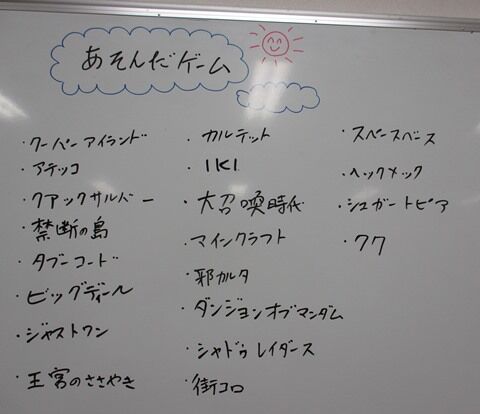 あそんだゲーム
・クーパーアイランド
・アテッコ
・クアックサルバー
・禁断の島
・タブーコード
・ビッグディール
・ジャストワン
・王宮のささやき
・カルテット
・IKI
・大召喚時代
・マインクラフト
・邪カルタ
・ダンジョンオブマンダム
・シャドウレイダース
・街コロ
・スペースベース
・ヘックメック
・シュガートピア
・77